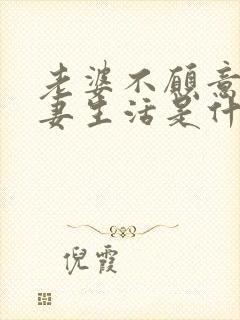 老婆不愿意
妻生活是什
倪霞